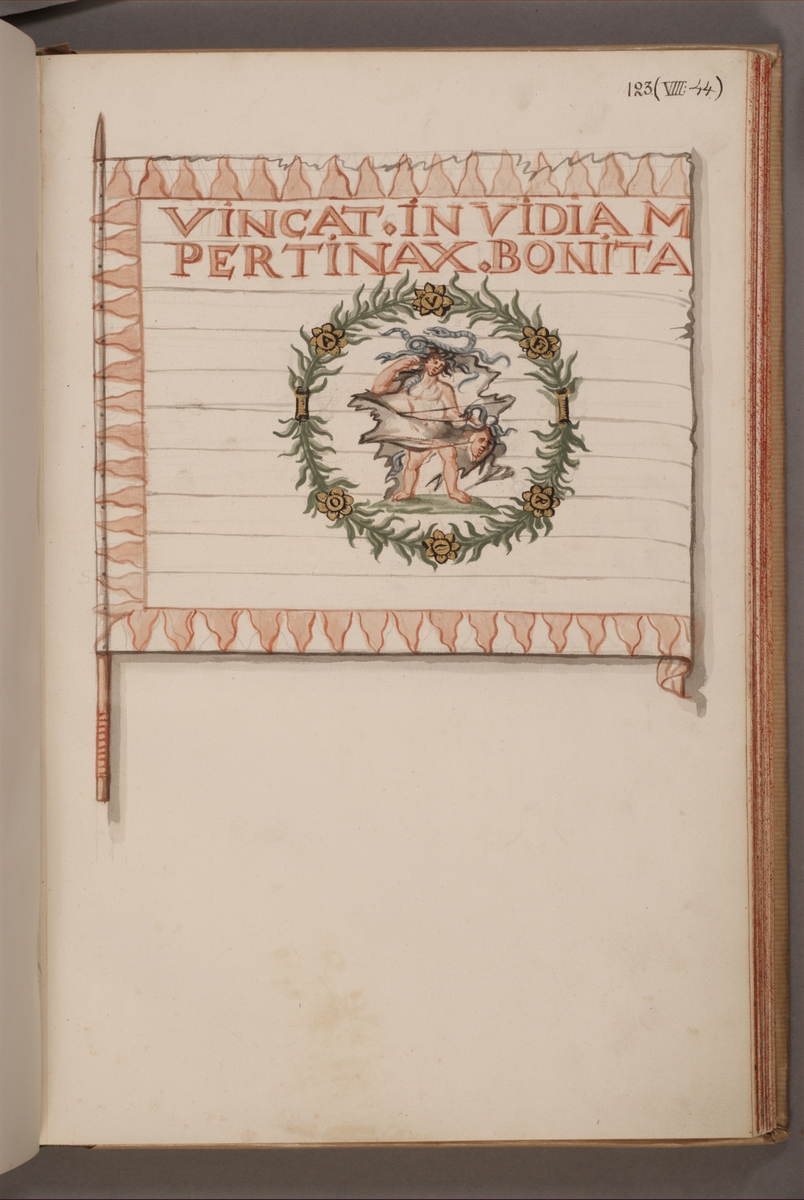 123 (VIII:44)
VINCAT. INVIDIAM
PERTINAX. BONITA
V
A
R
O
R